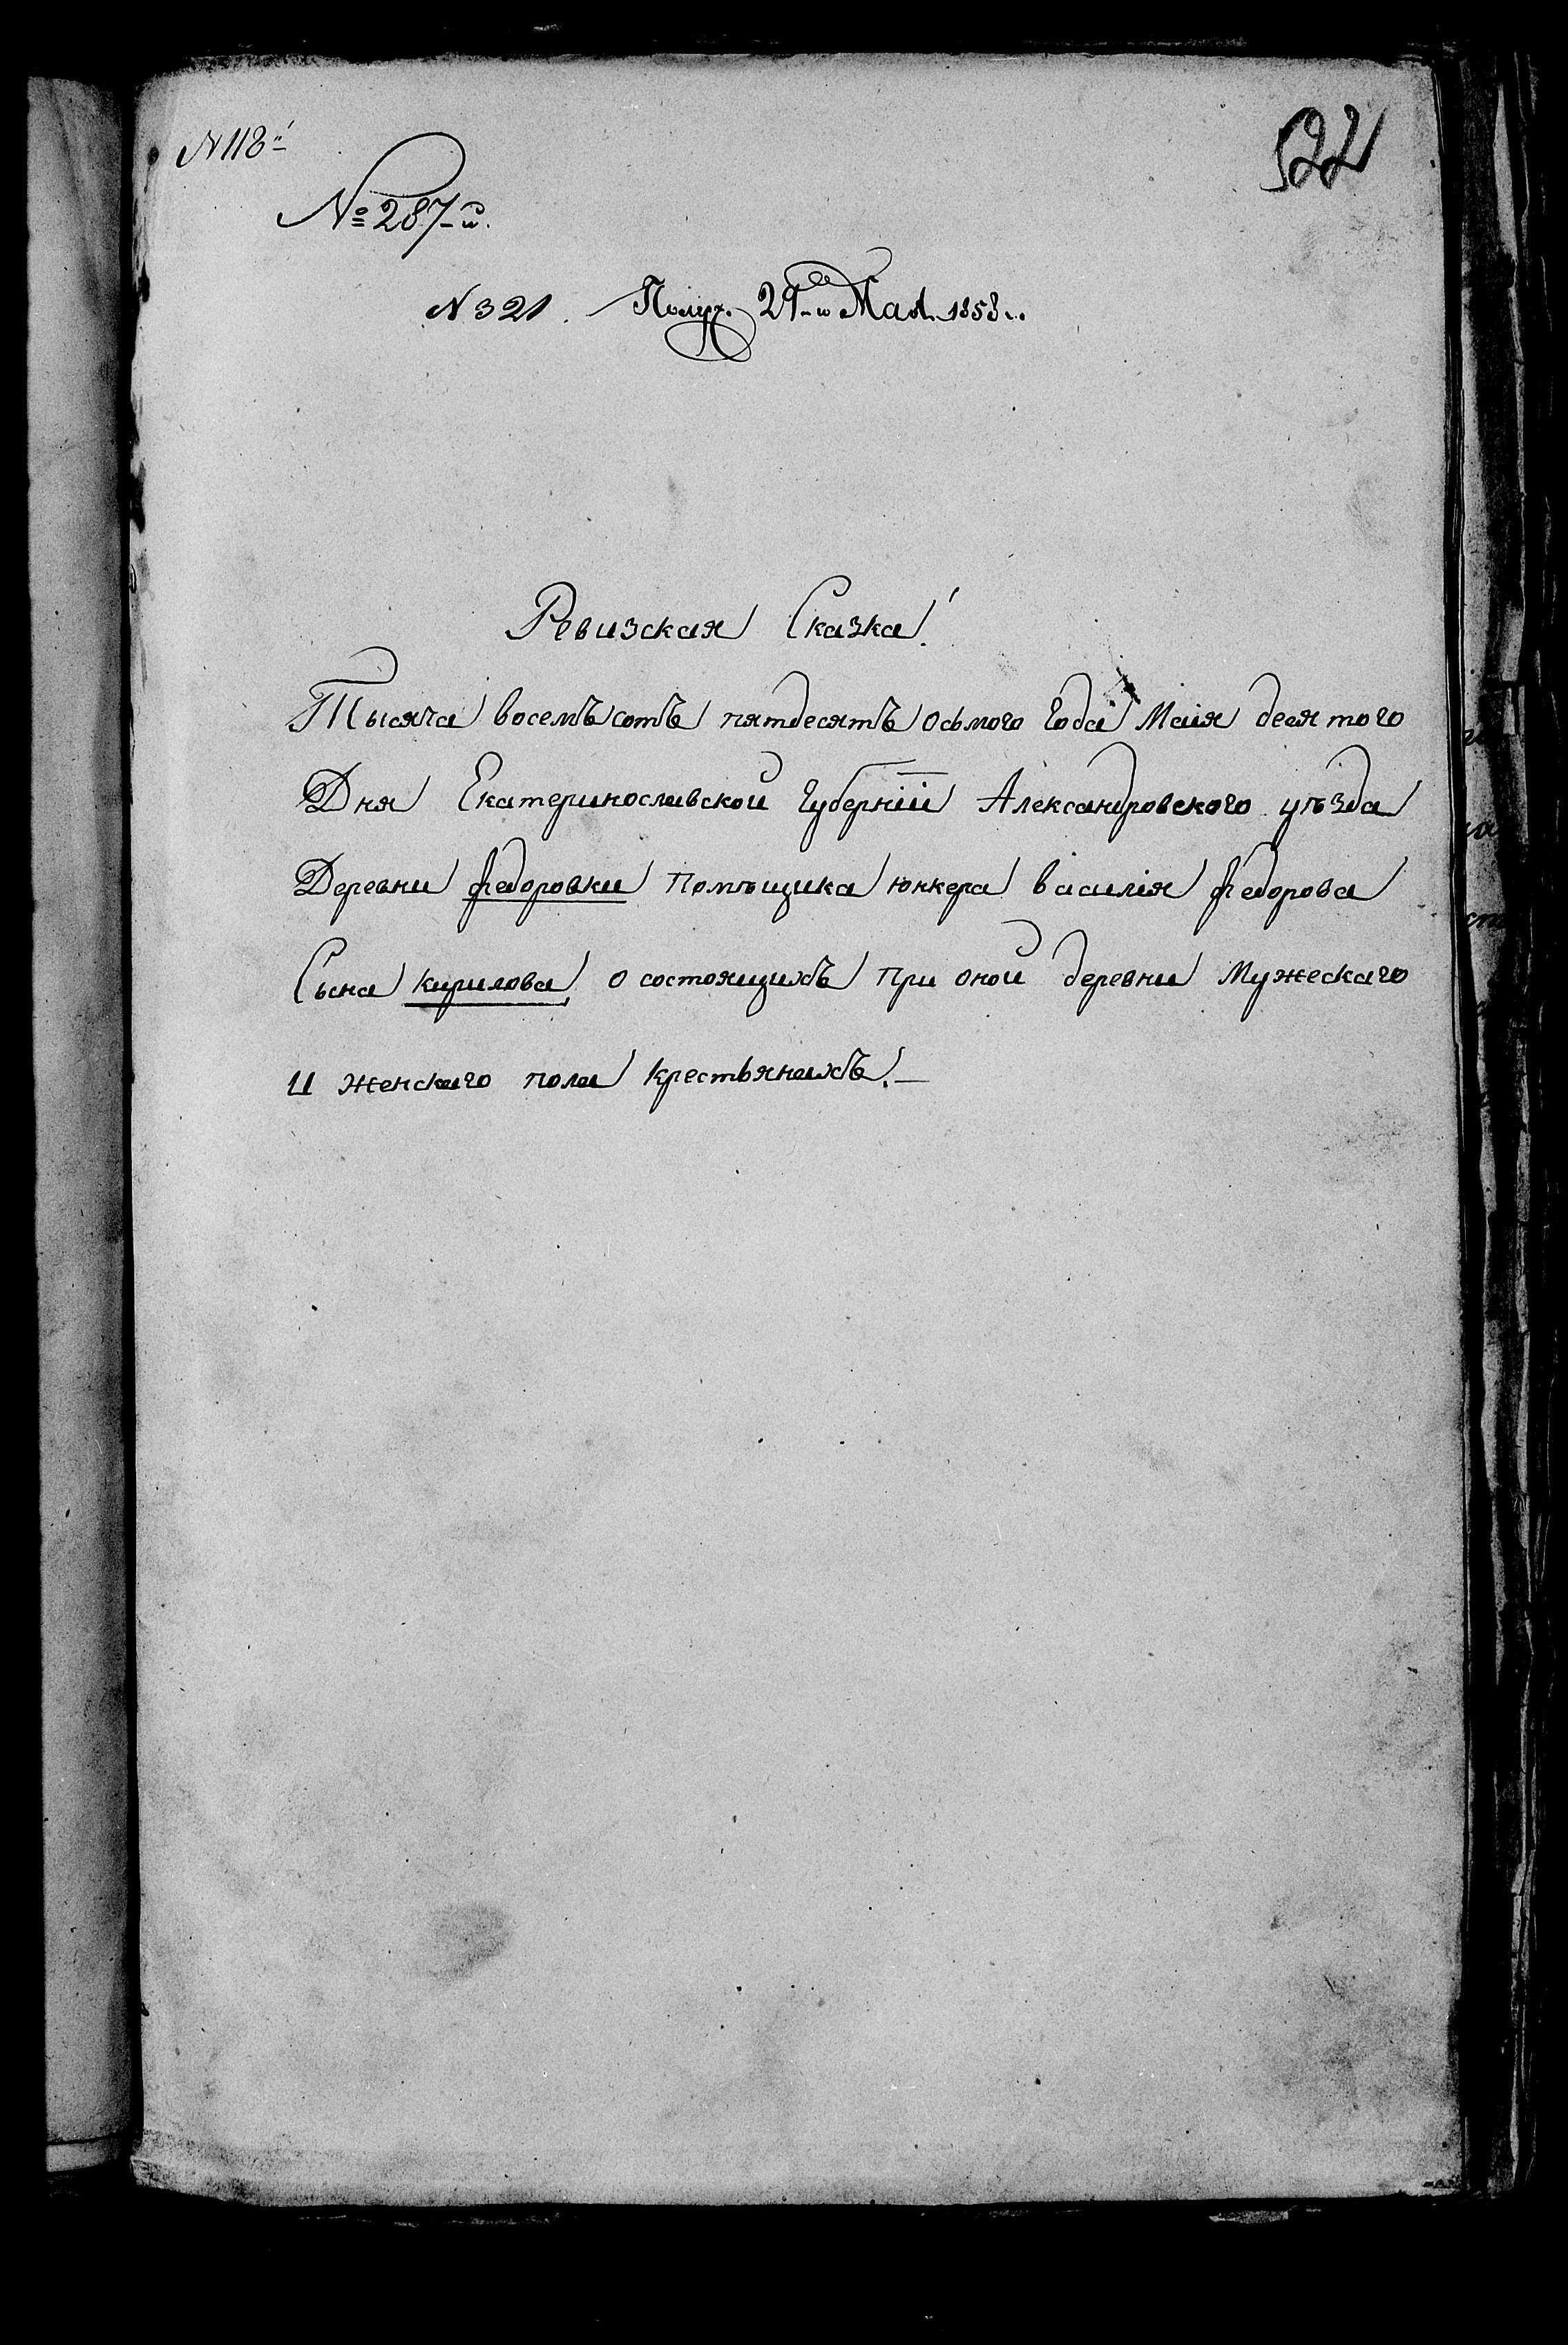 N 118й
522
№ 287-й.
N 321. Получ. 29-го Мая 1858 г.
Ревизская Сказка!
Тысяча восемъ сотъ пятдесятъ осьмого Года Маія десятого
Дня Екатеринославской Губерніи Александровского уѣзда
Деревни федоровки Помѣщика юнкера василія федорова
Сына кирилова, о состоящихъ при оной деревни Мужескаго
И женскаго пола крестьянахъ.—